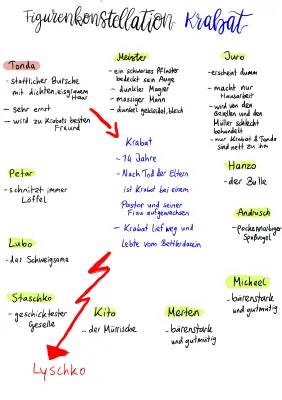 Figurenkonstellation Krabat
Tonda
- stattlicher Bursche
mit dichtem, eisgrauem
Haar
- sehr ernst
- wird zu Krabats besten
Freund
Meister
- ein schwarzes Pflaster
bedeckt sein Auge
- dunkler Magier
- massiger Mann
- dunkel gekleidet, bleich
Juro
- erscheint dumm
- macht nur
Hausarbeit
- wird von den
Gesellen und den
Müller schlecht
behandelt
- nur Krabat & Tonda
sind nett zu ihm
Krabat
- 14 Jahre
- Nach Tod der Eltern
ist Krabat bei einem
Pastor und seiner
Frau aufgewachsen
- Krabat lief weg und
lebte vom Bettlerdasein
Petar
- schnitzt immer
Löffel
Hanzo
- der Bulle
Andrusch
- pockennarbiger
Spaßvogel
Lubo
- das Schweigsame
Michael
- bärenstark
und gutmütig
Staschko
- geschicktester
Geselle
Kito
- der Mürrische
Merten
- bärenstark
und gutmütig
Lyschko